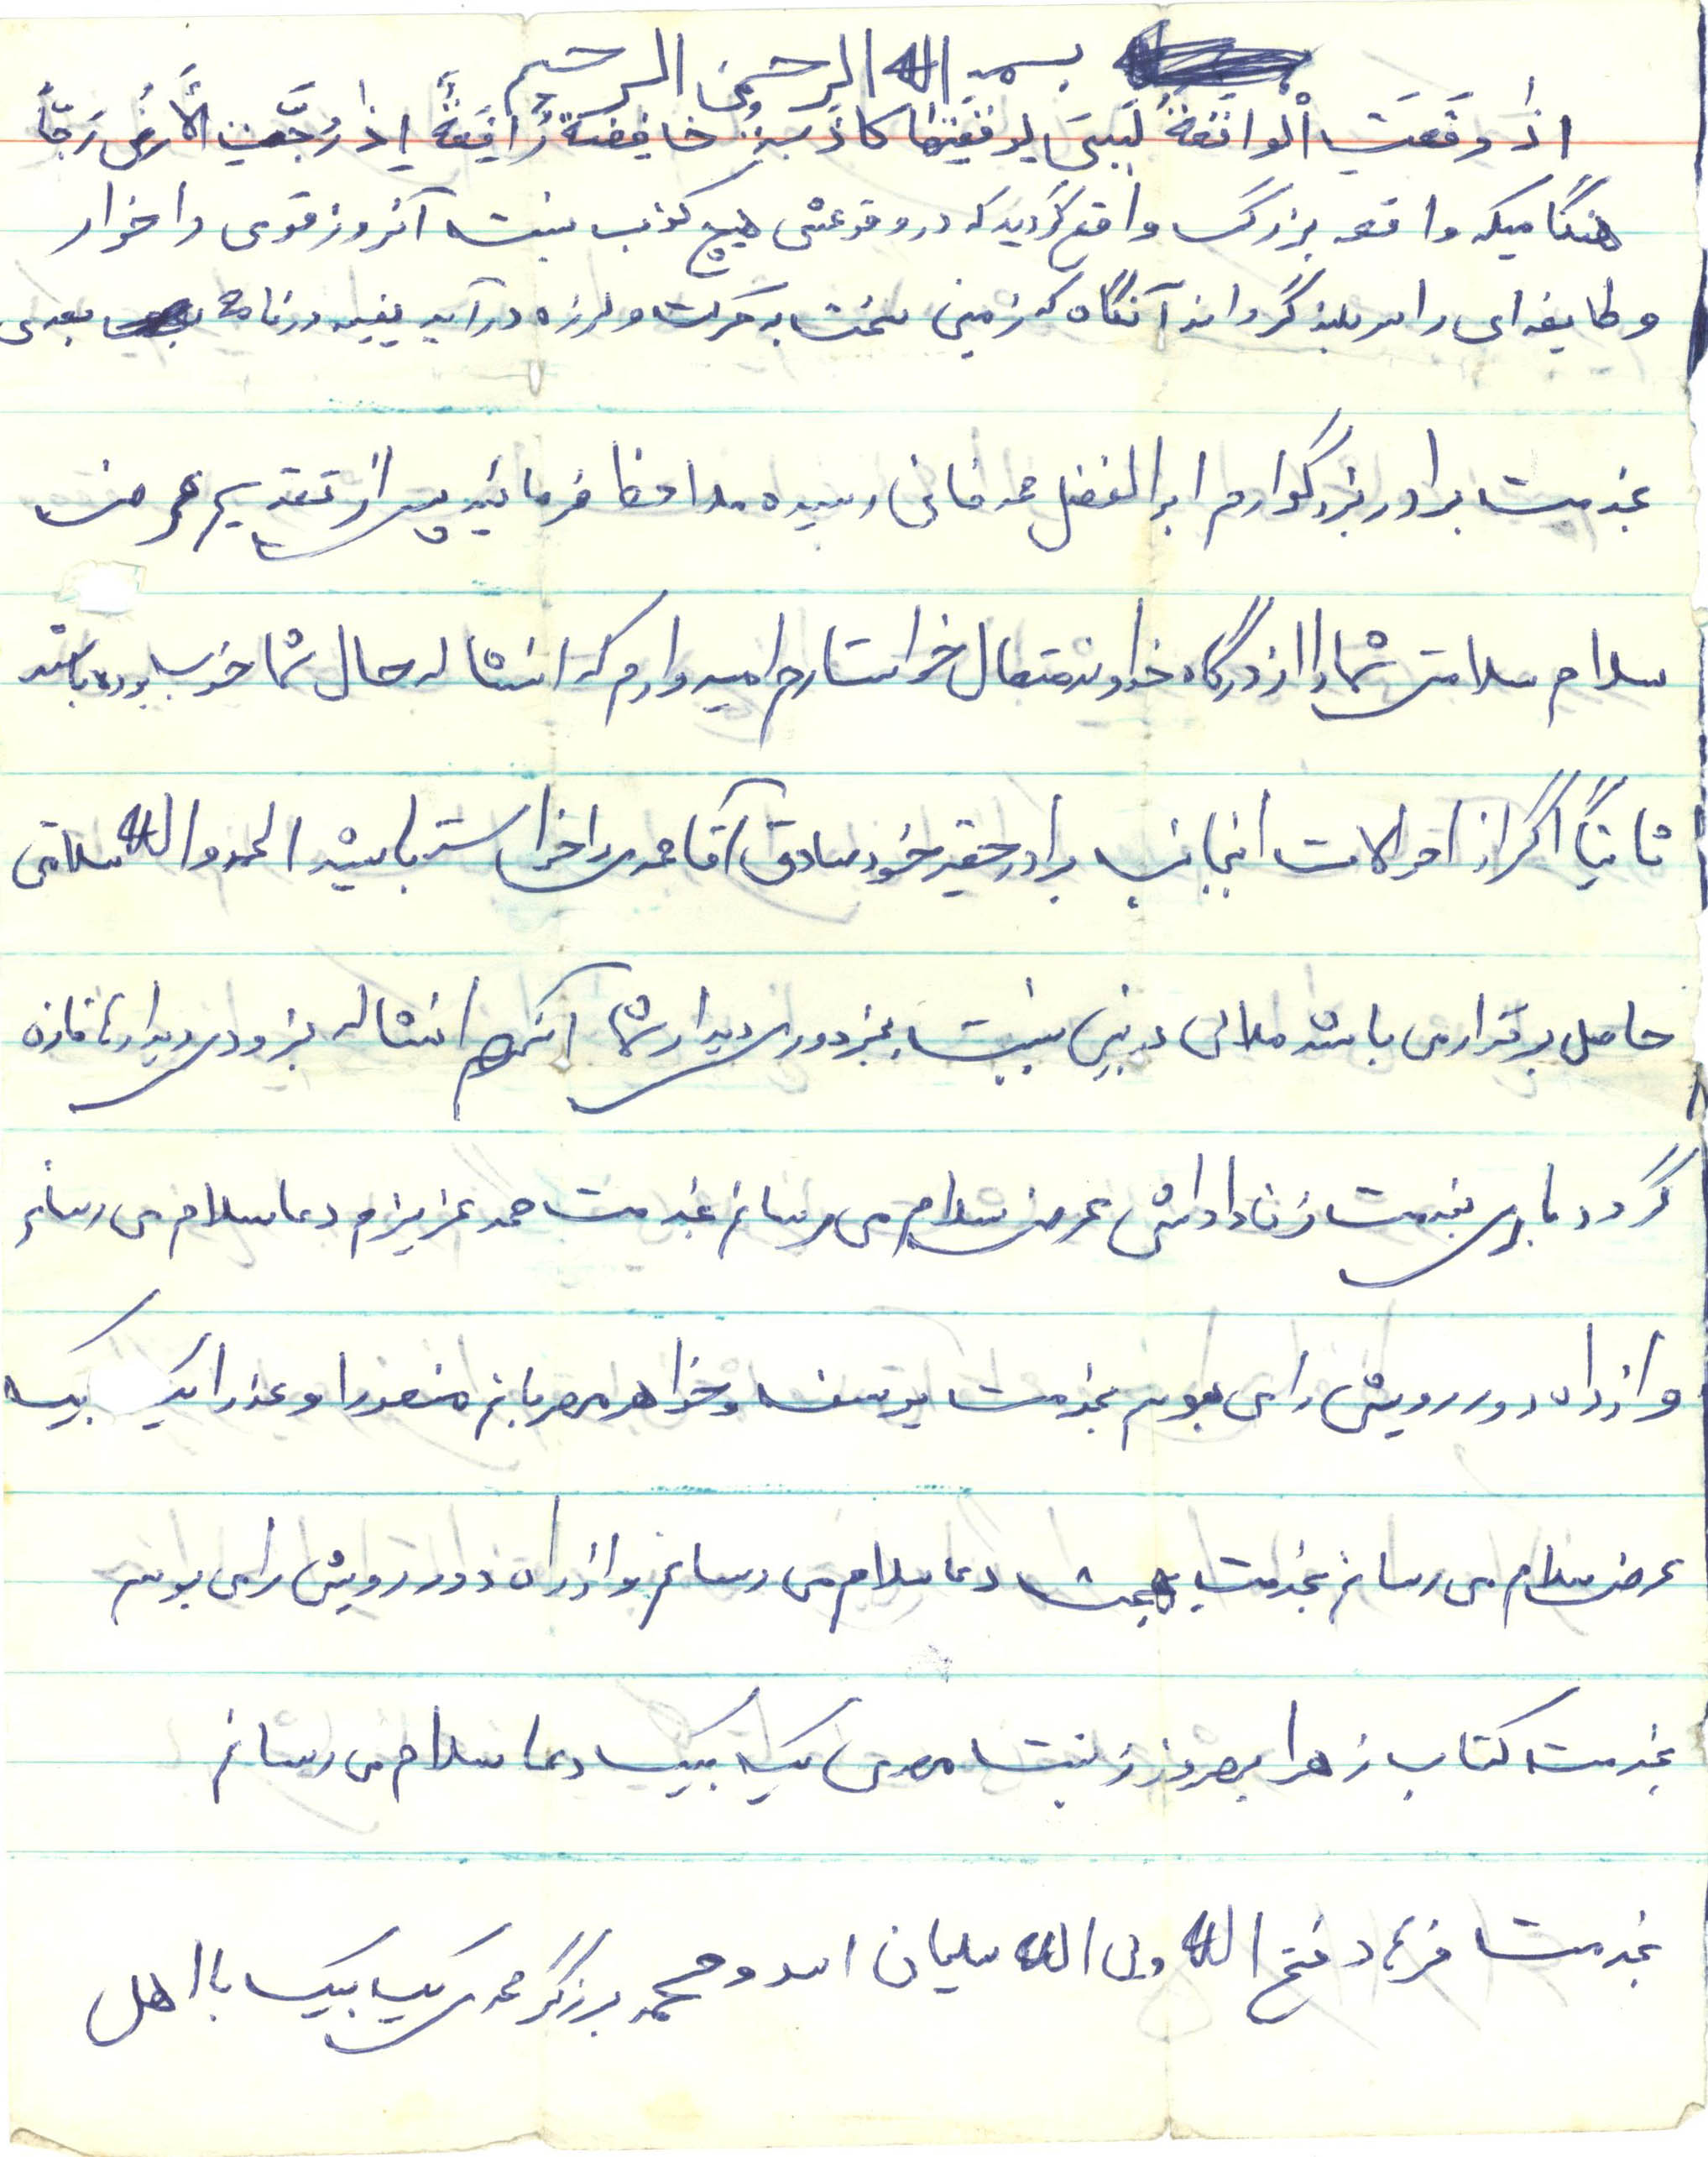 بسمه الله الرحمن الرحیم
اذا وَقَعَتِ اْلواقَعَةُ لَیسَ لِوقعَتِها کاذَبةٌ خافِضَةٌ رافِعَةٌ اِذا رُجَّتِ الاَرضُ رَجّاً
هنگامیکه واقعه بزرگ واقع گردید که در وقوعش هیچ کذب نیست آنروز قومی را خوار
و طایفه ای را سر بلند گرداند آنگاه که زمین سخت به حرکت و لرزه در آید بقیه در نامه بعدی
بخدمت برادر بزرگوارم ابوالفضل رسیده ملاحظا فرمائید پس از تقدیم عرض
سلام سلامتی شما را از درگاه خداوند متعال خواستارم امیدوارم که انشاله حال شما خوب بوده باشد
ثانیاً اگر از احوالات اینجانب برادر حقیر خود صادق آقامحمدی را خواسته باشید الحمد والله سلامتی
حاصل برقرار می باشد ملالی در بین نیست بجز دوری دیدار شما آنهم انشاله بزودی دیدارها تازه
گردد باری بخدمت زن داداش عرض سلام می رسانم بخدمت عزیزم دعا سلام می رسانم
و از راه دور رویش را می بوسم بخدمت یوسف و خواهر مهربانم و عذرا یک بیک
عرض سلام می رسانم بخدمت بهجت دعا سلام می رسانم و از راه دور رویش را می بوسم
بخدمت کتاب زهرا بهروز زینت مهدی یک بیک دعا سلام می رسانم
بخدمت فرهاد فتح الله ولی الله سلیمان اسد و محمد برزگر محمدی یک بیک با اهل